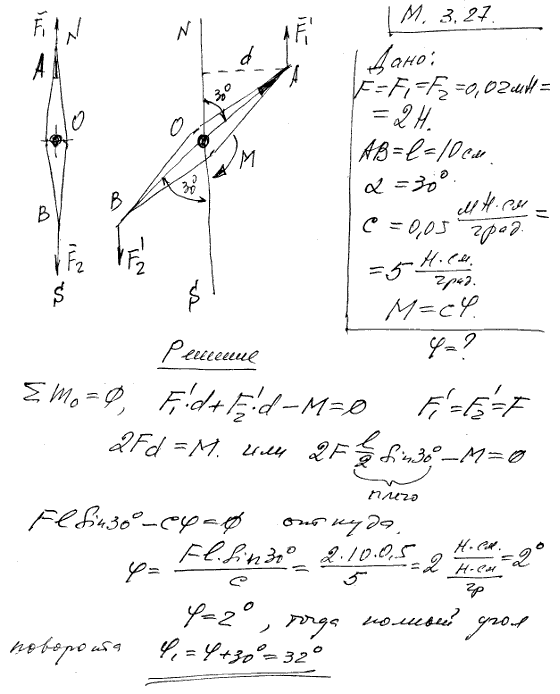 М. 3.27.
F̄₁ N
A
O
B
F̄₂
S
N d F̄₁'
A
30°
O
M
30°
B
F₂'
S
Дано:
F=F₁=F₂=0,02мН=
=2Н.
AB=l=10см.
α=30°.
c=0,05 мН·см/град. =
=5 Н·см./град.
M=cφ.
φ=?
Решение
Σm₀=0, F₁'·d+F₂'·d−M=0 F₁'=F₂'=F
2Fd=M. или 2F l/2 Sin30°−M=0
плечо
FlSin30°−cφ=0 откуда
φ= Fl·Sin30°/c = 2·10·0,5/5 =2 Н·см./(Н·см/гр) =2°
φ=2°, тогда полный угол
поворота φ₁=φ+30°=32°